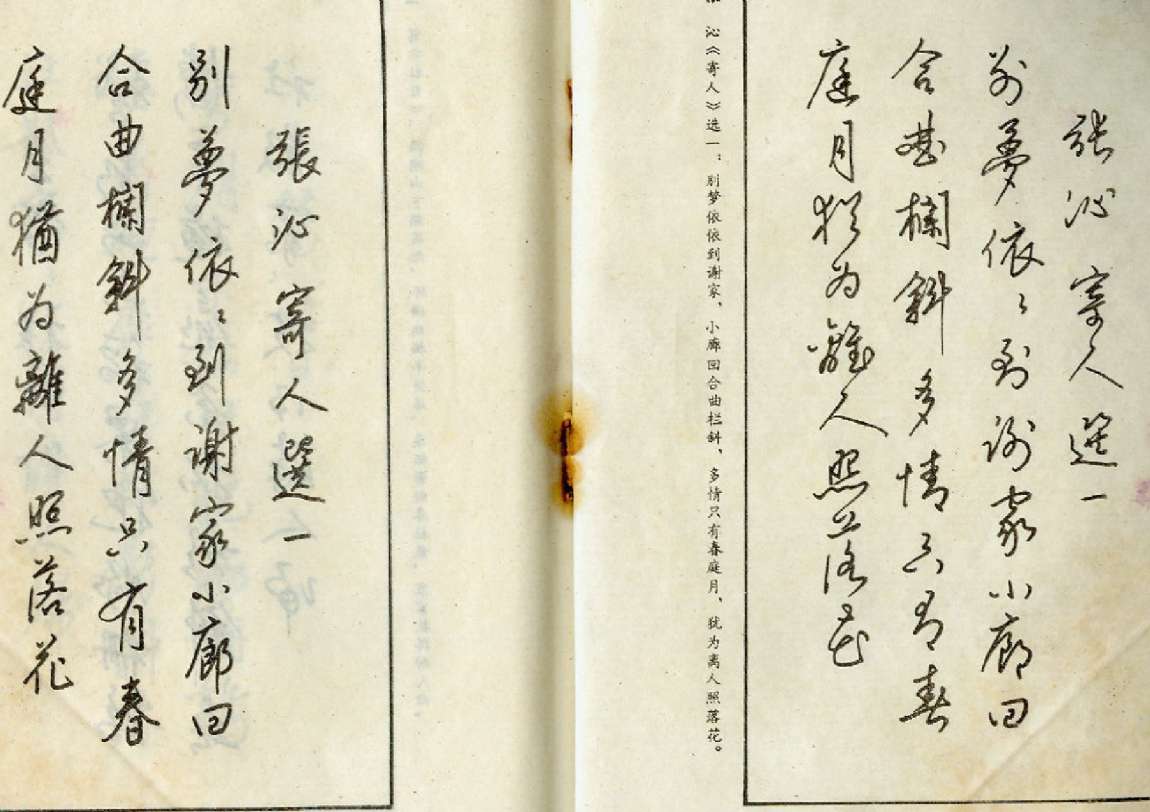 張泌寄人選一
别夢依〻到谢家小廊回
合曲欄斜多情只有春
庭月犹为離人照落花
沁《寄人》选一：别梦依依到谢家，小廊回合曲栏斜，多情只有春庭月，犹为离人照落花。
張泌寄人選一
别夢依〻到谢家小廊回
合曲欄斜多情只有春
庭月猶为離人照落花